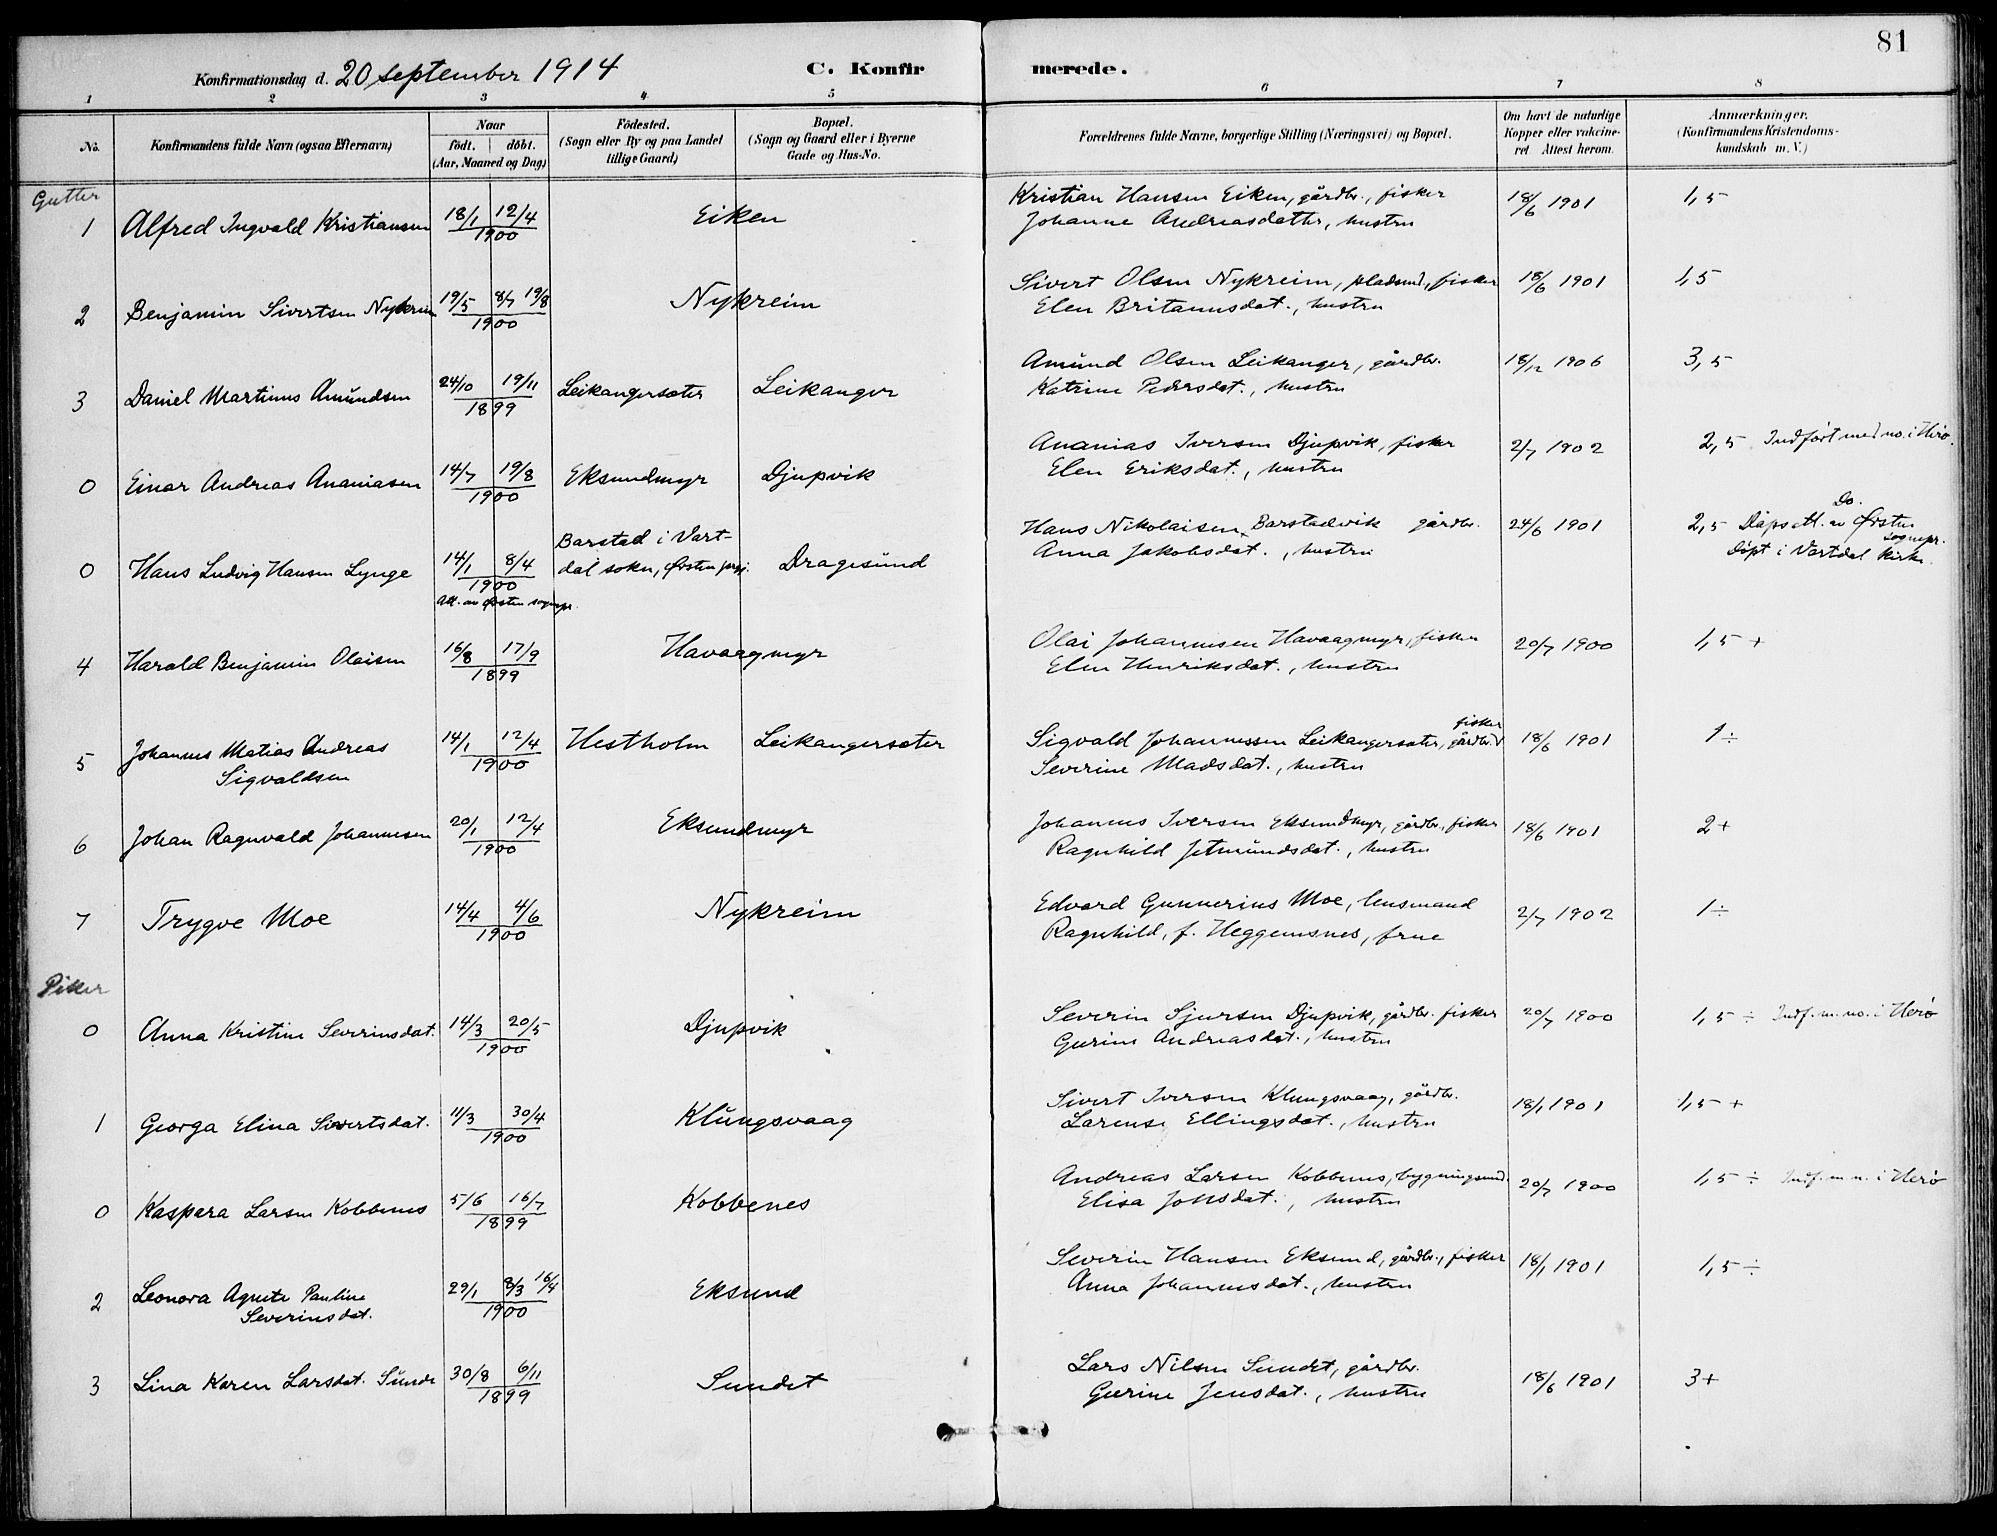 81
Konfirmationsdag d. 20 september 1914 C. Konfirmerede.
1 2 3 4 5 6 7 8
No. Konfirmandens fulde Navn (ogsaa Efternavn) Naar födt. döbt. (Aar, Maaned og Dag) Födested. (Sogn eller By og paa Landet tillige Gaard) Bopæl. (Sogn og Gaard eller i Byerne Gade og Hus-No. Forældrenes fulde Navne, borgerlige Stilling (Næringsvei) og Bopæl. Om havt de naturlige Kopper eller vakcineret Attest herom. Anmærkninger. (Konfirmandens Kristendomskundskab m. V.)
Gutter
1 Alfred Ingvald Kristiansen 18/1 12/4 1900 Eiken Kristian Hansen Eiken, gårdbr., fisker 18/6 1901 1,5
Johanne Andreasdatter, hustru
2 Benjamin Sivertsen Nykreim 19/5 8/7 19/8 1900 Nykreim Sivert Olsen Nykreim, pladsmd., fisker 18/6 1901 1,5
Elen Britanusdat., hustru
3 Daniel Martinus Amundsen 24/10 19/11 1899 Leikangersæter Leikanger Amund Olsen Leikanger, gårdbr. 18/12 1906 3,5
Katrine Pedersdat., hustru
0 Einar Andreas Ananiasen 14/7 19/8 1900 Eksundmyr Djupvik Ananias Iversen Djupvik, fisker 2/7 1902 2,5 Indført med no. i Herø.
Elen Eriksdat., hustru
0 Hans Ludvig Hansen Lynge 14/1 8/4 1900 Barstad i Vartdal sokn, Ørsten prgj. Dragesund Hans Nikolaisen Barstadvik gårdbr. 24/6 1901 2,5 Do. Dåpsatt. av Ørsten sognepr. Döpt i Vartdal kirke.
Anna Jakobsdat., hustru
Att. av Ørsten sognepr.
4 Harald Benjamin Olaisen 16/8 17/9 1899 Havaagmyr Olai Johannesen Havaagmyr, fisker 20/7 1900 1,5 +
Elen Henriksdat., hustru
5 Johannes Matias Andreas Sigvaldsen 14/1 12/4 1900 Hestholm Leikangersæter Sigvald Johannessen Leikangersæter, gårdbr. fisker 18/6 1901 1 ÷
Severine Madsdat., hustru
6 Johan Ragnvald Johannesen 20/1 12/4 1900 Eksundmyr Johannes Iversen Eksundmyr, gårdbr., fisker 18/6 1901 2+
Ragnhild Jetmundsdat., hustru
7 Trygve Moe 14/4 4/6 1900 Nykreim Edvard Gunnerius Moe, lensmand 2/7 1902 1 ÷
Ragnhild, f. Heggemsnes, frue
Piker
0 Anna Kristine Severinsdat. 14/3 20/5 1900 Djupvik Severin Sjursen Djupvik, gårdbr. fisker 20/7 1900 1,5 ÷ Indf. m. no. i Herø
Gurine Andreasdat., hustru
1 Georga Elina Sivertsdat. 11/3 30/4 1900 Klungsvaag Sivert Iversen Klungsvaag, gårdbr. 18/1 1901 1,5 +
Larense Ellingsdat., hustru
0 Kaspara Larsen Kobbenes 5/6 16/7 1899 Kobbenes Andreas Larsen Kobbenes, bygningsmd. 20/7 1900 1,5 ÷ Indf. m. n. i Herø
Elisa Jonsdat., hustru
2 Leonora Agnete Pauline Severinsdat. 29/1 8/3 16/4 1900 Eksund Severin Hansen Eksund, gårdbr., fisker 18/1 1901 1,5 ÷
Anna Johannesdat., hustru
3 Lina Karen Larsdat. Sunde 30/8 6/11 1899 Sundet Lars Nilsen Sundet, gårdbr. 18/6 1901 3+
Gurine Jensdat., hustru